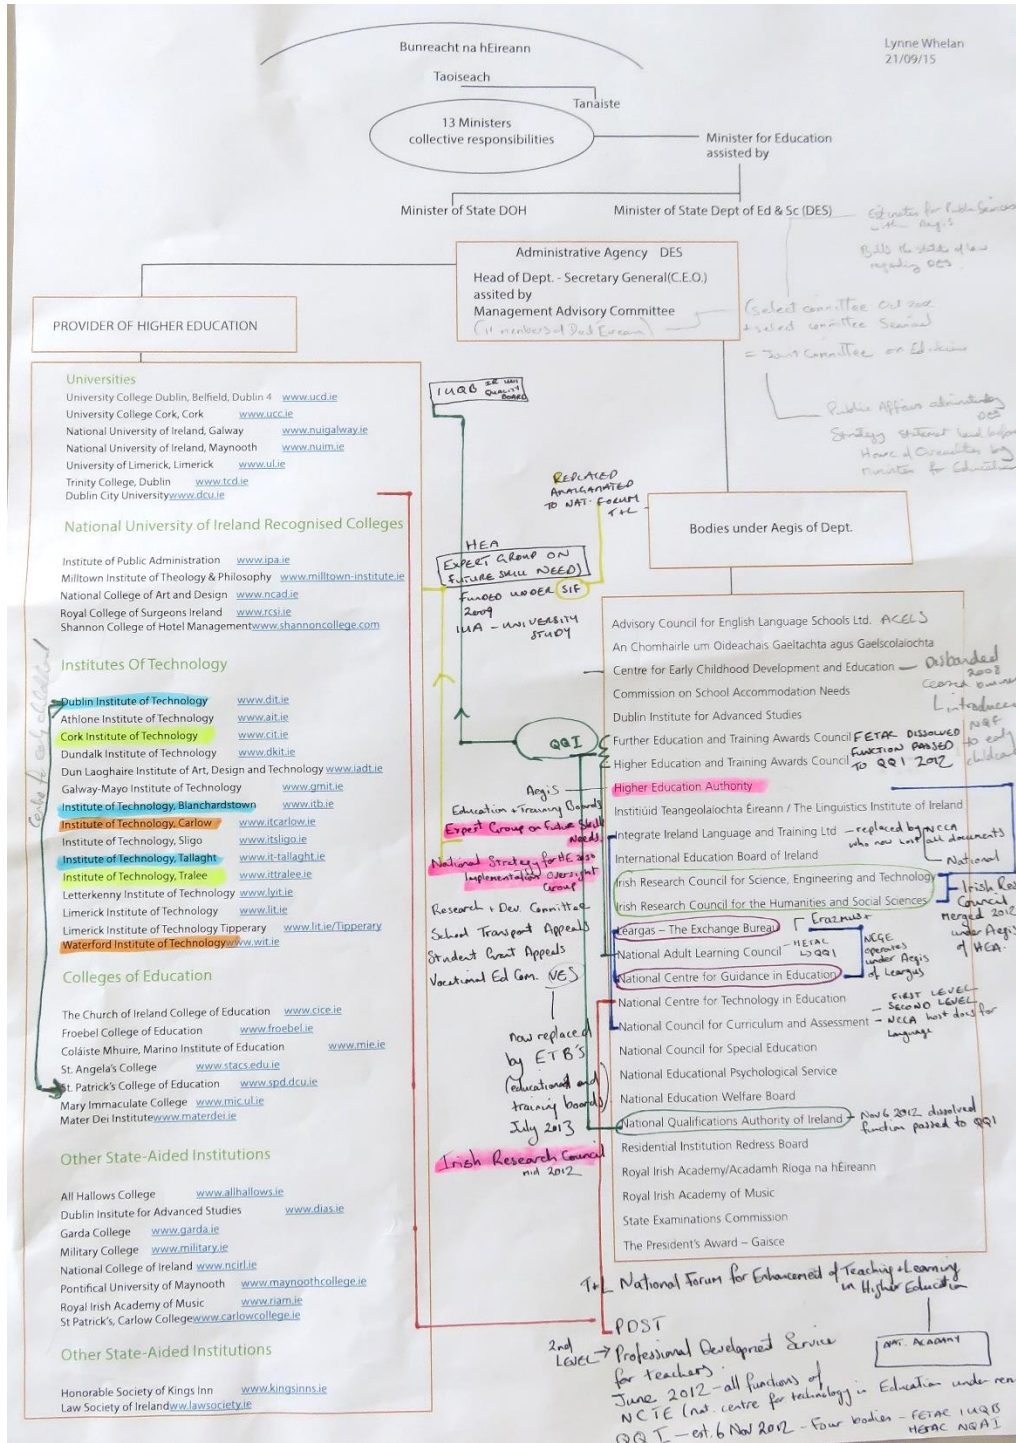 Lynne Whelan
21/09/15
Bunreacht na hEireann
Taoiseach
Tanaiste
13 Ministers
collective responsibilities
Minister for Education
assisted by
Minister of State DOH
Minister of State Dept of Ed & Sc (DES)
Estimates for Public Services
within Aegis
Bills the state of law
regarding DES
Administrative Agency DES
Head of Dept. - Secretary General(C.E.O.)
assited by
Management Advisory Committee
(11 members of Dail Eireann)
(select committee Oct 2002
+ select committee Seanad
= Joint Committee on Education
Public Affairs administered by
DES
Strategy statement laid before
Houses of Oireachtas by
minister for Education
PROVIDER OF HIGHER EDUCATION
Universities
University College Dublin, Belfield, Dublin 4 www.ucd.ie
University College Cork, Cork www.ucc.ie
National University of Ireland, Galway www.nuigalway.ie
National University of Ireland, Maynooth www.nuim.ie
University of Limerick, Limerick www.ul.ie
Trinity College, Dublin www.tcd.ie
Dublin City Universitywww.dcu.ie
National University of Ireland Recognised Colleges
Institute of Public Administration www.ipa.ie
Milltown Institute of Theology & Philosophy www.milltown-institute.ie
National College of Art and Design www.ncad.ie
Royal College of Surgeons Ireland www.rcsi.ie
Shannon College of Hotel Managementwww.shannoncollege.com
Institutes Of Technology
Dublin Institute of Technology www.dit.ie
Athlone Institute of Technology www.ait.ie
Cork Institute of Technology www.cit.ie
Dundalk Institute of Technology www.dkit.ie
Dun Laoghaire Institute of Art, Design and Technology www.iadt.ie
Galway-Mayo Institute of Technology www.gmit.ie
Institute of Technology, Blanchardstown www.itb.ie
Institute of Technology, Carlow www.itcarlow.ie
Institute of Technology, Sligo www.itsligo.ie
Institute of Technology, Tallaght www.it-tallaght.ie
Institute of Technology, Tralee www.ittralee.ie
Letterkenny Institute of Technology www.lyit.ie
Limerick Institute of Technology www.lit.ie
Limerick Institute of Technology Tipperary www.lit.ie/Tipperary
Waterford Institute of Technologywww.wit.ie
Colleges of Education
The Church of Ireland College of Education www.cice.ie
Froebel College of Education www.froebel.ie
Coláiste Mhuire, Marino Institute of Education www.mie.ie
St. Angela's College www.stacs.edu.ie
St. Patrick's College of Education www.spd.dcu.ie
Mary Immaculate College www.mic.ul.ie
Mater Dei Institutewww.materdei.ie
Other State-Aided Institutions
All Hallows College www.allhallows.ie
Dublin Insitute for Advanced Studies www.dias.ie
Garda College www.garda.ie
Military College www.military.ie
National College of Ireland www.ncirl.ie
Pontifical University of Maynooth www.maynoothcollege.ie
Royal Irish Academy of Music www.riam.ie
St Patrick's, Carlow Collegewww.carlowcollege.ie
Other State-Aided Institutions
Honorable Society of Kings Inn www.kingsinns.ie
Law Society of Irelandww.lawsociety.ie
Centre for early childhood
IUQB IR UNI
QUALITY
BOARD
REPLACED
AMALGAMATED
TO NAT. FORUM
T+L
HEA
EXPERT GROUP ON
FUTURE SKILL NEEDS
FUNDED UNDER SIF
2009
IUA - UNIVERSITY
STUDY
QQI
Aegis
Education + Training Boards
Expert Group on Future Skills
Needs
National Strategy for HE 2030
Implementation Oversight
Group
Research + Dev. Committee
School Transport Appeals
Student Grant Appeals
Vocational Ed Com. VES
now replaced
by ETB'S
(educational and
training boards)
July 2013
Irish Research Council
mid 2012
Bodies under Aegis of Dept.
Advisory Council for English Language Schools Ltd. ACELS
An Chomhairle um Oideachais Gaeltachta agus Gaelscolaiochta
Centre for Early Childhood Development and Education - Disbanded
2008
Ceased business
introduced
NQF
to early
childcare
Commission on School Accommodation Needs
Dublin Institute for Advanced Studies
Further Education and Training Awards Council FETAC DISSOLVED
Higher Education and Training Awards Council FUNCTION PASSED
TO QQI 2012
Higher Education Authority
Institiúid Teangeolaiochta Éireann / The Linguistics Institute of Ireland
Integrate Ireland Language and Training Ltd - replaced by NCCA
who now host all documents
National
International Education Board of Ireland
Irish Research Council for Science, Engineering and Technology
Irish Research Council for the Humanities and Social Sciences
- Irish Res
Council
Merged 2012
under Aegis
of HEA.
Leargas – The Exchange Bureau
Erasmus+
National Adult Learning Council - HETAC
↳ QQI
NCGE
operates
under Aegis
of Leargus
National Centre for Guidance in Education
National Centre for Technology in Education
FIRST LEVEL
- SECOND LEVEL
National Council for Curriculum and Assessment - NCCA host docs for
Language
National Council for Special Education
National Educational Psychological Service
National Education Welfare Board
National Qualifications Authority of Ireland - Nov 6 2012 dissolved
function passed to QQI
Residential Institution Redress Board
Royal Irish Academy/Acadamh Rioga na hEireann
Royal Irish Academy of Music
State Examinations Commission
The President's Award – Gaisce
T+L National Forum for Enhancement of Teaching + Learning
in Higher Education
NAT. ACADEMY
PDST
2nd
LEVEL → Professional Development Service
for teachers.
June 2012 - all functions of
NCTE (nat. centre for technology in Education under
QQI - est. 6 Nov 2012 - Four bodies - FETAC IUQB
HETAC NQAI